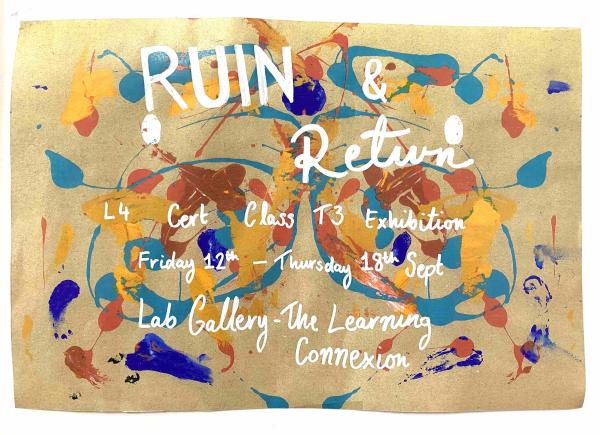 RUIN &
Return
L4 Cert Class T3 Exhibition
Friday 12th – Thursday 18th Sept
Lab Gallery - The Learning
Connexion